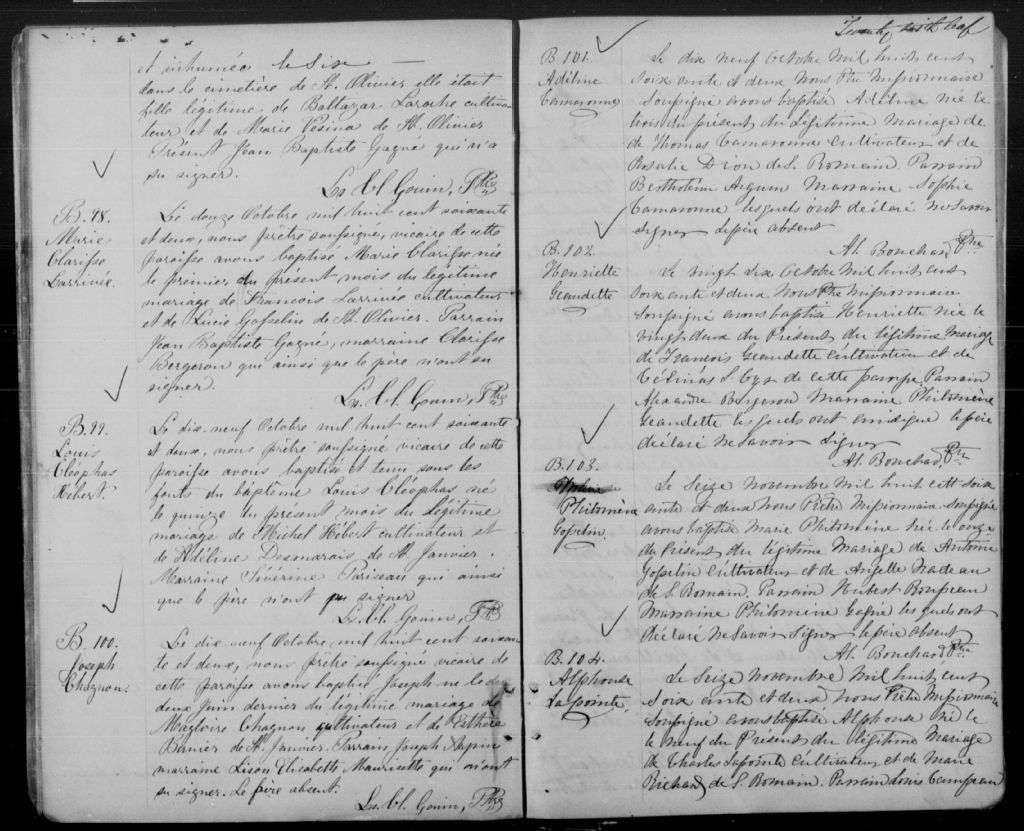 et inhumée le six
dans le cimetière de St. Olivier elle était
fille légitime de Baltazar Laroche cultiva
teur et de Marie Vésina de St. Olivier
Présent Jean Baptiste Gagné qui n'a
su signer.
Ls. Cl. Gouin, Ptre
B. 98.
Marie
Clarisse
Larrivée.
Le douze Octobre mil huit cent soixante
et deux, nous prêtre soussigné, vicaire de cette
paroisse avons baptisé Marie Clarisse née
le premier du présent mois du légitime
mariage de François Larrivée cultivateur
et de Lucie Gosselin de St. Olivier. Parrain
Jean Baptiste Gagné, marraine Clarisse
Bergeron qui ainsi que le père n'ont su
signer.
Ls. Cl. Gouin, Ptre
B. 99.
Louis
Cléophas
Hébert.
Le dix-neuf Octobre mil huit cent soixante
et deux, nous prêtre soussigné vicaire de cette
paroisse avons baptisé et tenu sous les
fonts du baptême Louis Cléophas né
le quinze du présent mois du légitime
mariage de Michel Hébert cultivateur et
de Adéline Desmarais de St. Janvier.
Marraine Sévérine Pariseau qui ainsi
que le père n'ont pu signer
Ls. Cl. Gouin, Ptre
B. 100.
Joseph
Chagnon.
Le dix-neuf Octobre, mil huit cent soixan
te et deux, nous prêtre soussigné vicaire de
cette paroisse avons baptisé Joseph né le
deux Juin dernier du légitime mariage de
Magloire Chagnon cultivateur et de Esthère
de St. Janvier. Parrain Joseph
marraine Elisabeth qui n'ont
su signer. Le père absent.
Ls. Cl. Gouin, Ptre
Twenty sixth leaf
B. 101.
Adéline
Camaronne
Le dix neuf Octobre Mil huit cent
soixante et deux Nous Ptre Missionnaire
soussigné avons baptisé Adéline née le
trois du présent du Légitime Mariage de
de Thomas Camaronne Cultivateur et de
Rosalie Dion de S. Romain. Parrain
Marraine Sophie
Camaronne lesquels ont déclaré ne savoir
signer le père absent
At. Bouchard, Ptre
B. 102.
Henriette
Geaudette
Le vingt six Octobre Mil huit cent
soixante et deux Nous Ptre Missionnaire
soussigné avons baptisé Henriette née le
vingt deux du Présent du légitime Mariage
de François Geaudette Cultivateur et de
S. Cyr de cette paroisse Parrain
Alexandre Bergeron Marraine Philomène
Geaudette lesquels ont le père
déclaré ne savoir signer
At. Bouchard, Ptre
B. 103.
Philomène
Gosselin.
Le Seize Novembre Mil huit cent soix
ante et deux Nous Prêtre Missionnaire soussigné
avons baptisé Marie Philomène née le onze
du Présent du légitime Mariage de Antoine
Gosselin Cultivateur et de Angelle Nadeau
de S. Romain. Parrain Hubert
Marraine Philomène les quels ont
déclaré ne savoir signer le père absent
At. Bouchard Ptre
B. 104.
Alphonse
Lapointe.
Le Seize Novembre Mil huit cent
soixante et deux Nous Prêtre Missionnaire
soussigné avons baptisé Alphonse né le
le neuf du Présent du légitime Mariage
de Charles Lapointe Cultivateur et de Marie
Richard de S. Romain. Parrain Louis